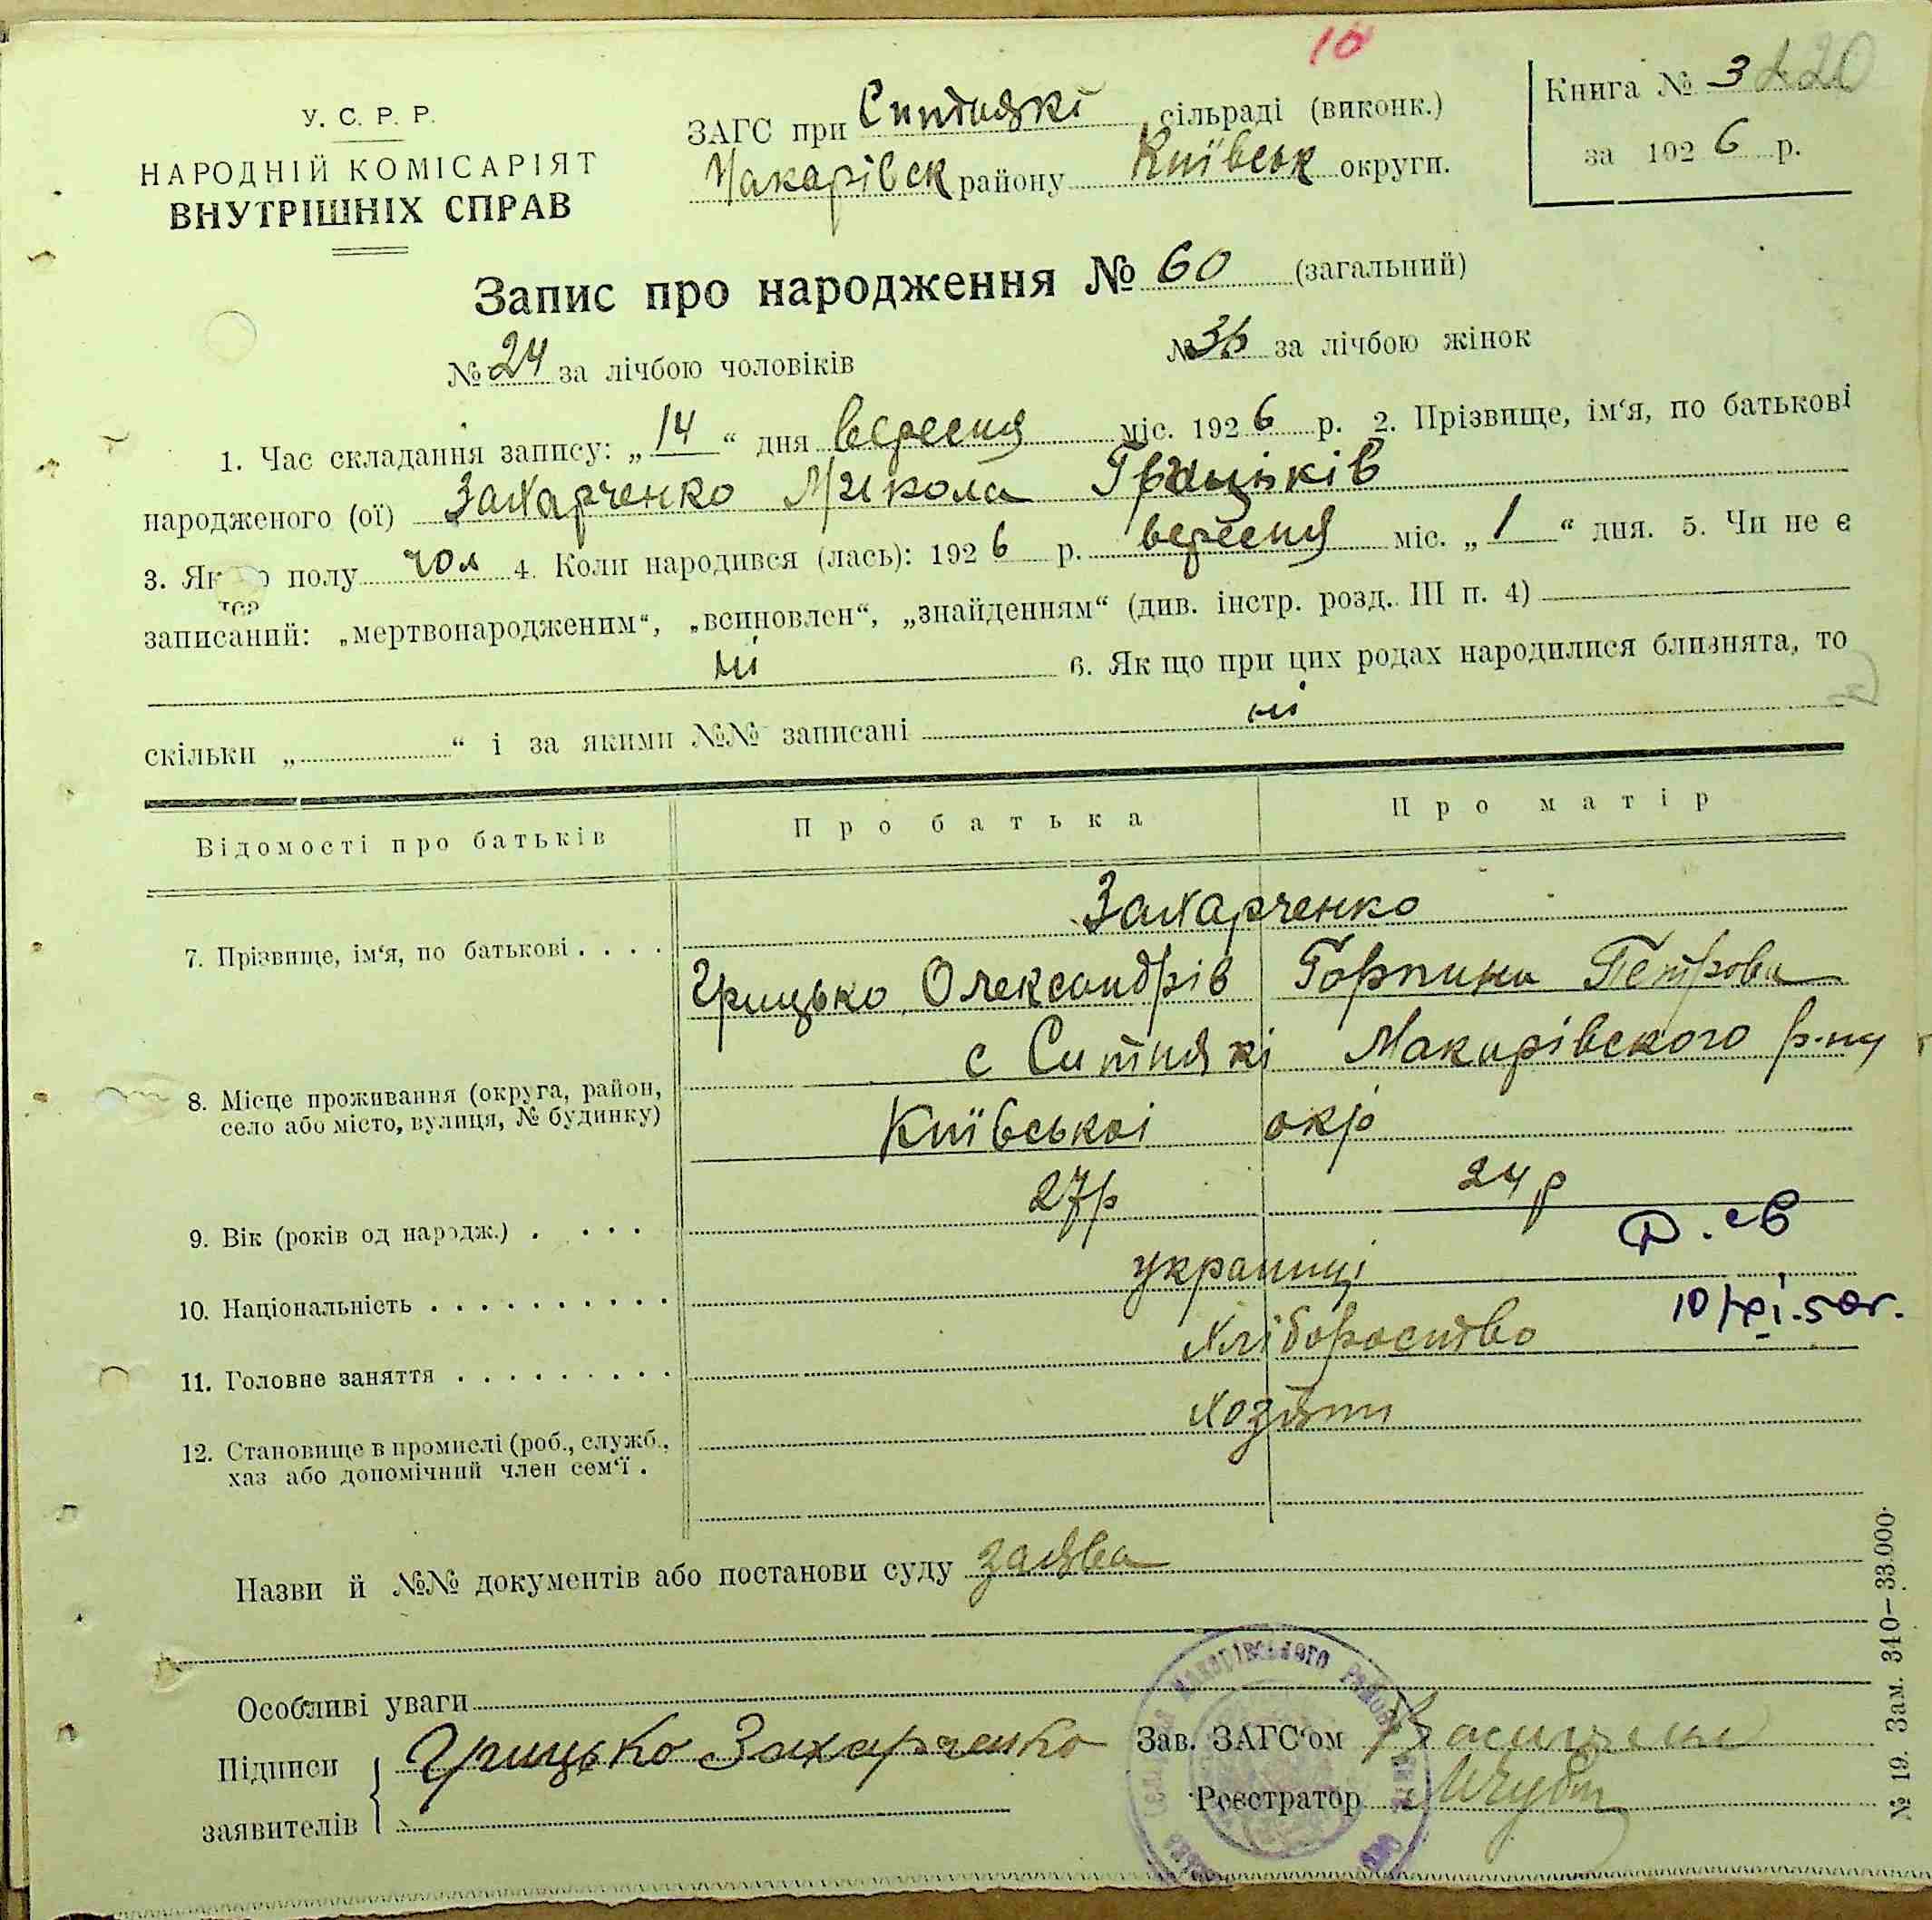 10
У. С. Р. Р.
НАРОДНІЙ КОМІСАРІЯТ
ВНУТРІШНІХ СПРАВ
ЗАГС при Ситнякі сільраді (виконк.)
Макарівськ району Київськ округи.
Книга № 3
за 1926 р.
Запис про народження № 60 (загальний)
№ 24 за лічбою чоловіків № 36 за лічбою жінок
1. Час складання запису: „14“ дня вересня міс. 1926 р. 2. Прізвище, ім‘я, по батькові
народженого (ої) Захарченко Микола Грицьків
3. Якого полу чол 4. Коли народився (лась): 1926 р. вересня міс. „1“ дня. 5. Чи не є
записаний: „мертвонародженим“, „всиновлен“, „знайденням“ (див. інстр. розд. III п. 4)
ні 6. Як що при цих родах народилися близнята, то
скільки „ “ і за якими №№ записані ні
Відомості про батьків Про батька Про матір
Захарченко
7. Прізвище, ім‘я, по батькові . . . .
Грицько Олександрів Горпина Петрова
с Ситнякі Макарівского р-ну
8. Місце проживання (округа, район,
село або місто, вулиця, № будинку)
Київськоі окр
27р 24р
9. Вік (років од народж.) . . . .
українці
10. Національність . . . . . . . . . .
Хліборобство
11. Головне заняття . . . . . . . . .
Хозяїн
12. Становище в промислі (роб., служб.,
хаз або допомічний член сем‘ї .
Назви й №№ документів або постанови суду заява
Особливі уваги
Підписи Грицько Захарченко Зав. ЗАГС‘ом
заявителів Реєстратор
Макарівського району
№ 19. Зам. 340—33.000.